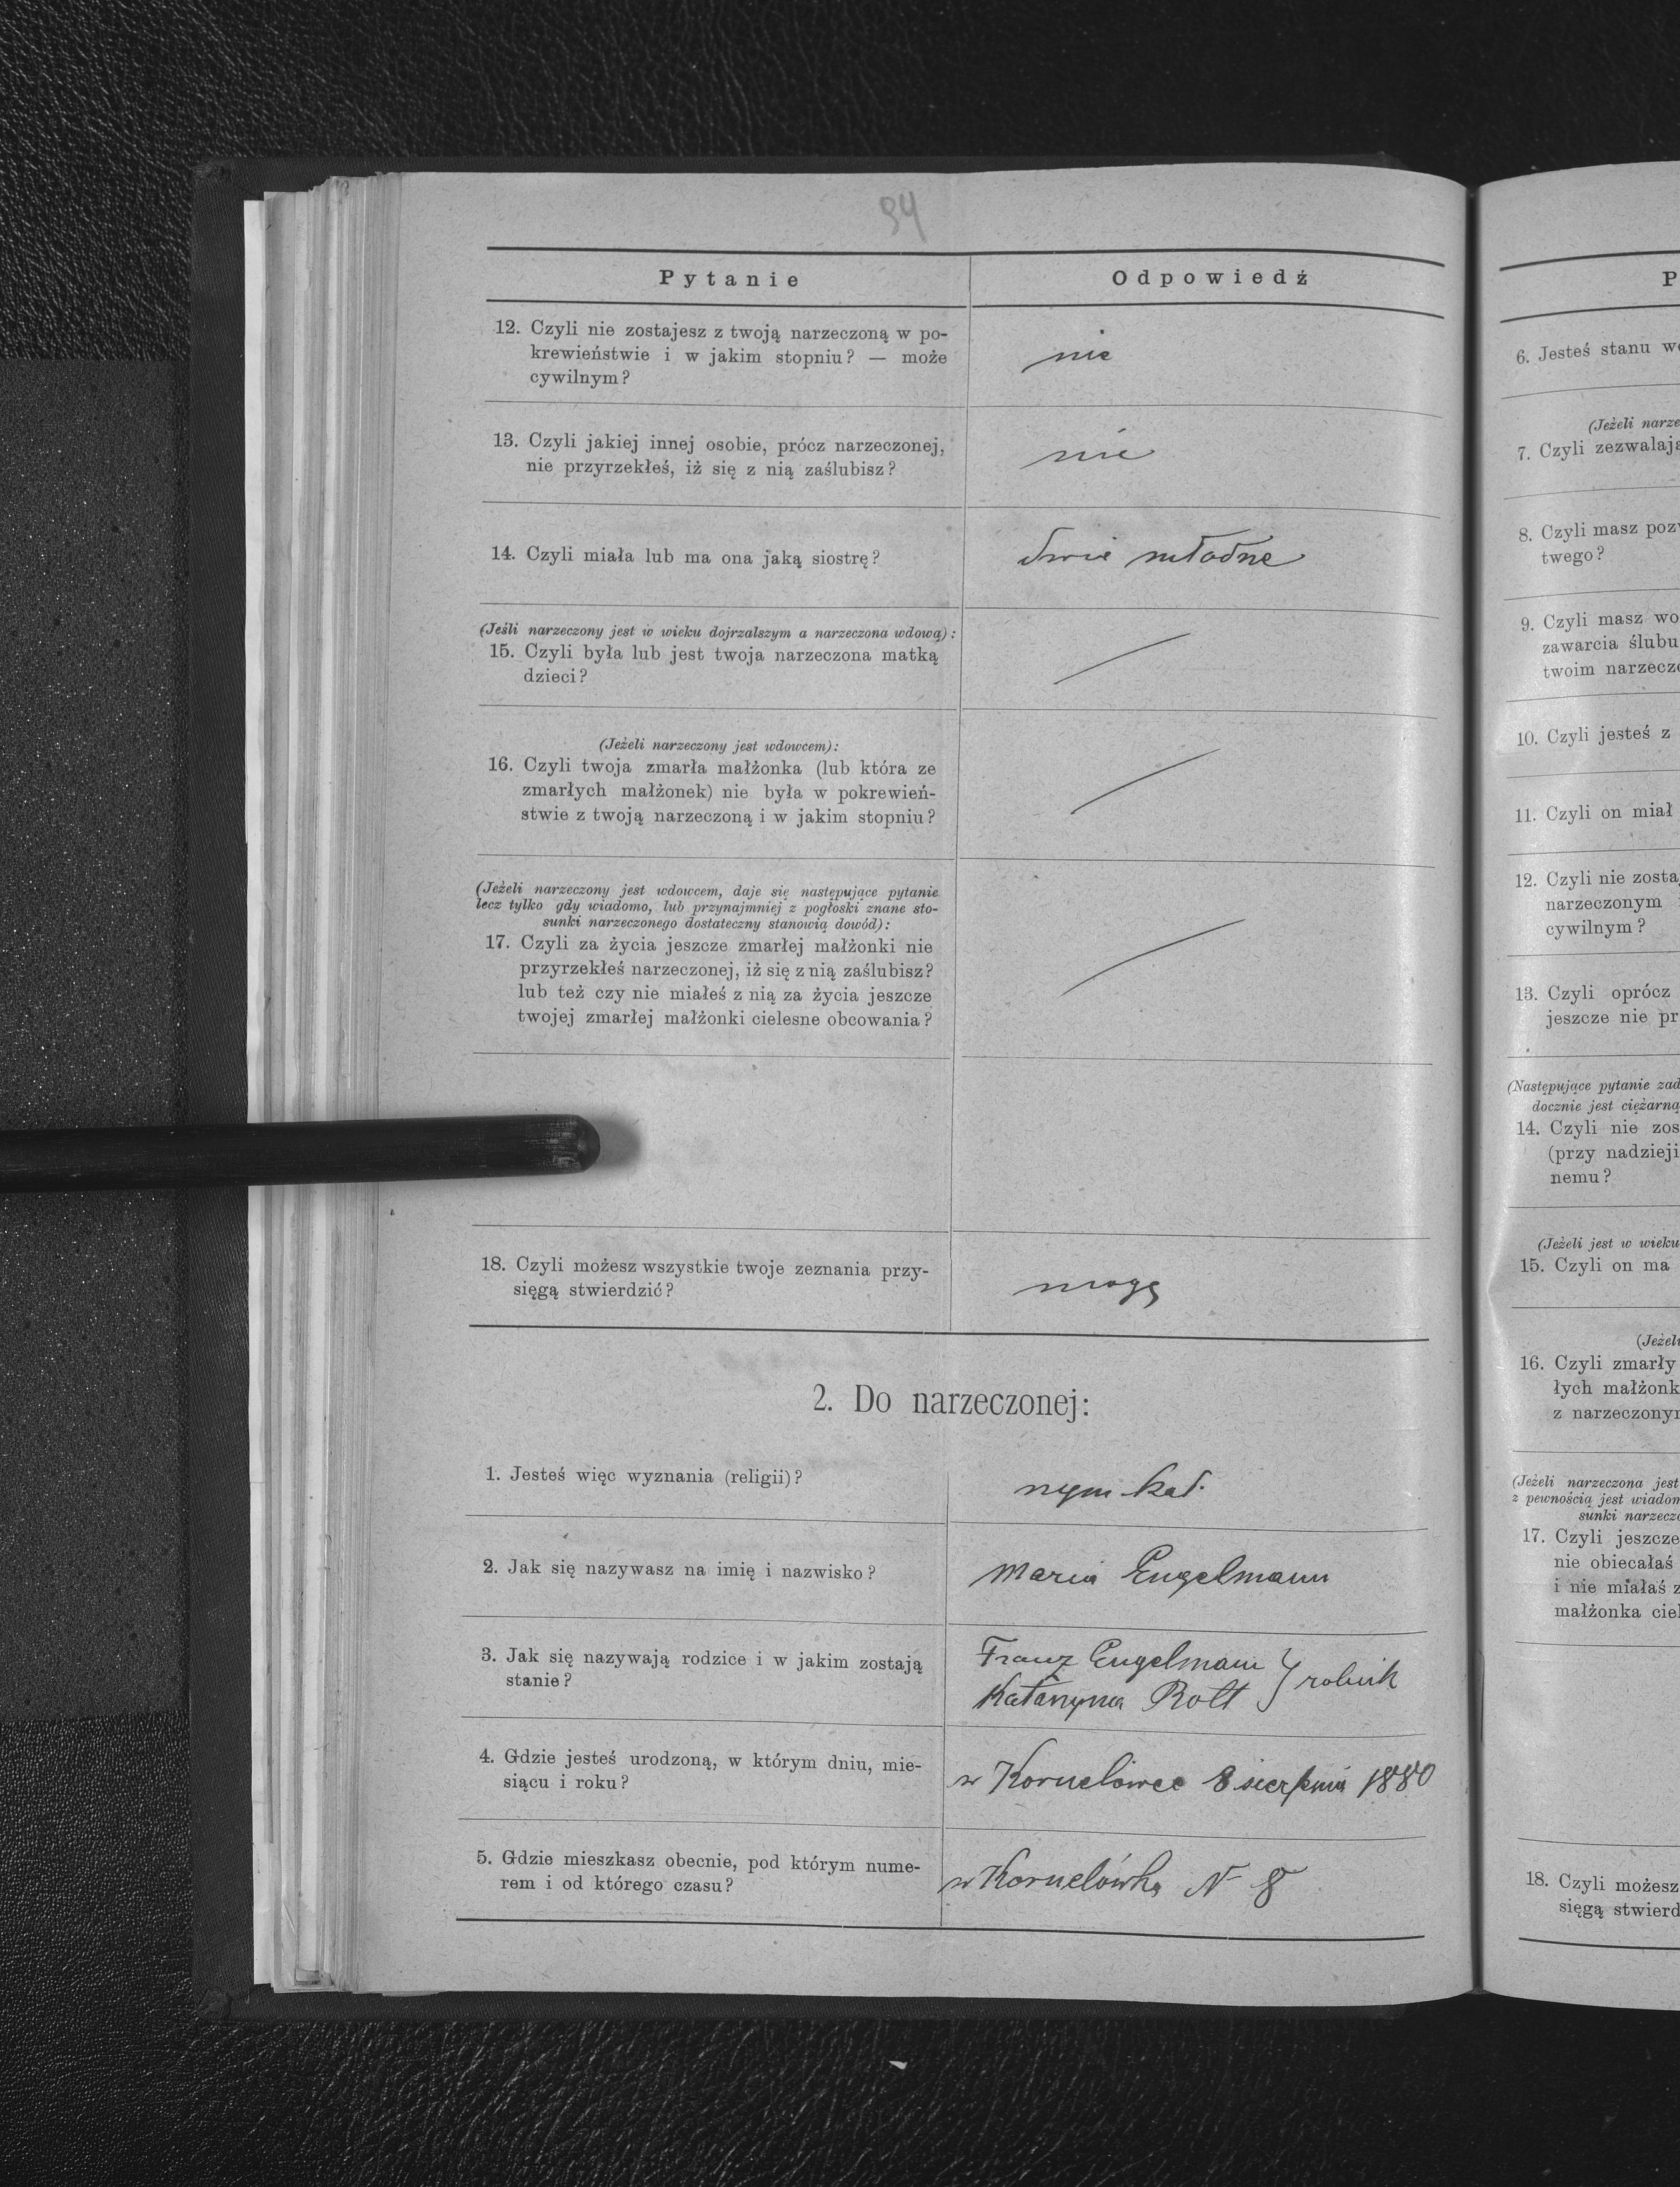 94
Pytanie
Odpowiedź
12. Czyli nie zostajesz z twoją narzeczoną w po-
krewieństwie i w jakim stopniu? — może
cywilnym?
nie
13. Czyli jakiej innej osobie, prócz narzeczonej,
nie przyrzekłeś, iż się z nią zaślubisz?
nie
14. Czyli miała lub ma ona jaką siostrę?
dwie młodne
(Jeśli narzeczony jest w wieku dojrzalszym a narzeczona wdową):
15. Czyli była lub jest twoja narzeczona matką
dzieci?
(Jeżeli narzeczony jest wdowcem):
16. Czyli twoja zmarła małżonka (lub która ze
zmarłych małżonek) nie była w pokrewień-
stwie z twoją narzeczoną i w jakim stopniu?
(Jeżeli narzeczony jest wdowcem, daje się następujące pytanie
lecz tylko gdy wiadomo, lub przynajmniej z pogłoski znane sto-
sunki narzeczonego dostateczny stanowią dowód):
17. Czyli za życia jeszcze zmarłej małżonki nie
przyrzekłeś narzeczonej, iż się z nią zaślubisz?
lub też czy nie miałeś z nią za życia jeszcze
twojej zmarłej małżonki cielesne obcowania?
18. Czyli możesz wszystkie twoje zeznania przy-
sięgą stwierdzić?
mogę
2. Do narzeczonej:
1. Jesteś więc wyznania (religii)?
rzym kat.
2. Jak się nazywasz na imię i nazwisko?
Maria Engelmann
3. Jak się nazywają rodzice i w jakim zostają
stanie?
Franz Engelmann
Katarzyna Rott } rolnik
4. Gdzie jesteś urodzoną, w którym dniu, mie-
siącu i roku?
w Kornelówce 8 sierpnia 1880
5. Gdzie mieszkasz obecnie, pod którym nume-
rem i od którego czasu?
w Kornelówką N 8
P
6. Jesteś stanu wo
(Jeżeli narze
7. Czyli zezwalają
8. Czyli masz pozw
twego?
9. Czyli masz wo
zawarcia ślubu
twoim narzeczo
10. Czyli jesteś z
11. Czyli on miał
12. Czyli nie zosta
narzeczonym
cywilnym?
13. Czyli oprócz
jeszcze nie pr
(Następujące pytanie zad
docznie jest ciężarną
14. Czyli nie zos
(przy nadzieji
nemu?
(Jeżeli jest w wieku
15. Czyli on ma
(Jeżeli
16. Czyli zmarły
łych małżonk
z narzeczonym
(Jeżeli narzeczona jest
z pewnością jest wiadom
sunki narzeczo
17. Czyli jeszcze
nie obiecałaś
i nie miałaś z
małżonka ciel
18. Czyli możesz
sięgą stwierd